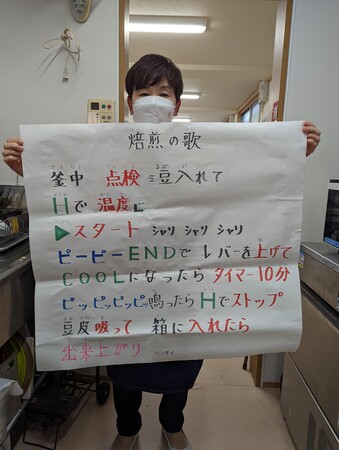 焙煎の歌
釜中 点検 豆入れて
Hで 温度に
▶スタート シャリ シャリ シャリ
ピーピーENDで レバーを上げて
COOLになったら タイマー10分
ピッピッピッピッ鳴ったら Hでストップ
豆皮 吸って 箱に入れたら
出来上がり